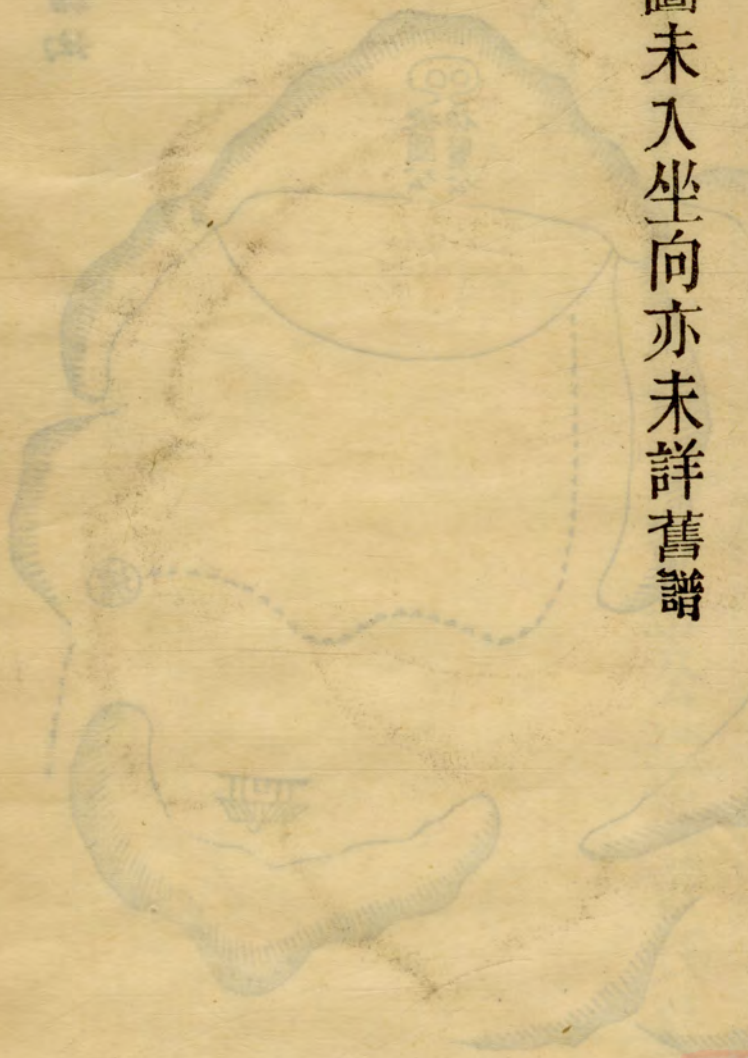 圖未入坐向亦未詳舊譜